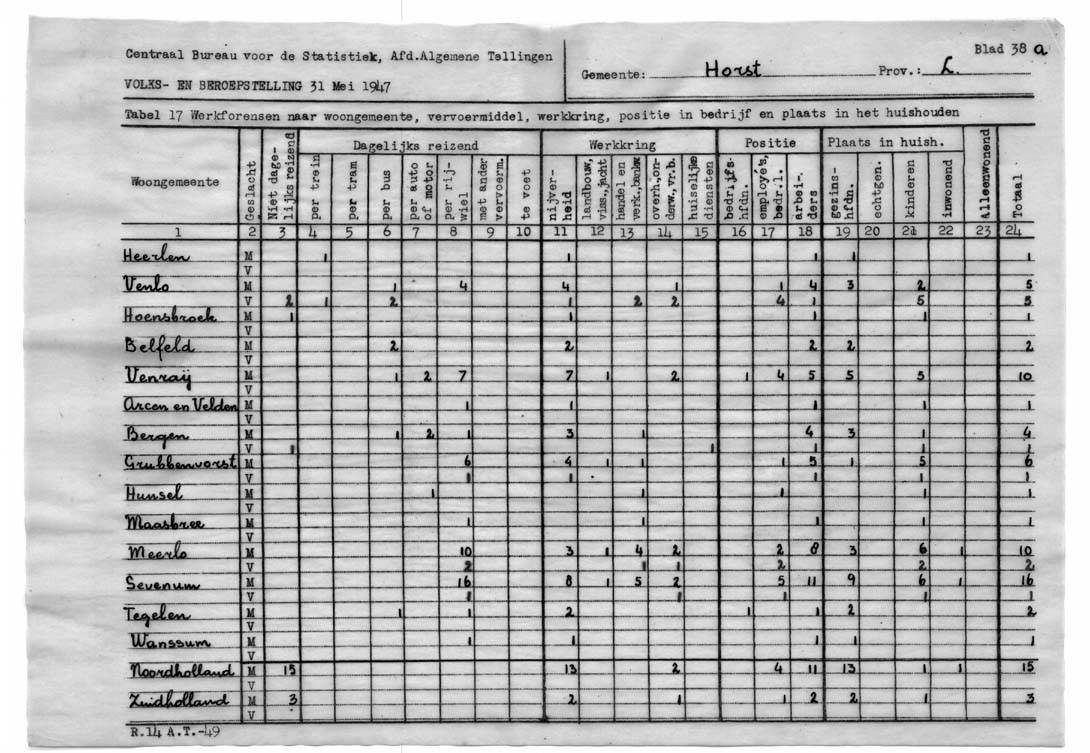 Centraal Bureau voor de Statistiek, Afd.Algemene Tellingen
Blad 38 a
Gemeente: Horst Prov.: L.
VOLKS- EN BEROEPSTELLING 31 Mei 1947
Tabel 17 Werkforensen naar woongemeente, vervoermiddel, werkkring, positie in bedrijf en plaats in het huishouden
Woongemeente
Geslacht
Niet dage-
lijks reizend
Dagelijks reizend
per trein
per tram
per bus
per auto
of motor
per rij-
wiel
met ander
vervoerm.
te voet
Werkkring
nijver-
heid
landbouw,
viss.,jacht
handel en
verk.,bankw
overh.,on-
derw.,vr.b.
huiselijke
diensten
Positie
bedrijfs-
hfdn.
employé's,
bedr.l.
arbei-
ders
Plaats in huish.
gezins-
hfdn.
echtgen.
kinderen
inwonend
Alleenwonend
Totaal
1 2 3 4 5 6 7 8 9 10 11 12 13 14 15 16 17 18 19 20 21 22 23 24
Heerlen M 1 1 1 1 1
V
Venlo M 1 4 4 1 1 4 3 2 5
V 2 1 2 1 2 2 4 1 5 5
Hoensbroek M 1 1 1 1 1
V
Belfeld M 2 2 2 2 2
V
Venraij M 1 2 7 7 1 2 1 4 5 5 5 10
V
Arcen en Velden M 1 1 1 1 1
V
Bergen M 1 2 1 3 1 4 3 1 4
V 1 1 1 1 1
Grubbenvorst M 6 4 1 1 1 5 1 5 6
V 1 1 1 1 1
Hunsel M 1 1 1 1 1
V
Maasbree M 1 1 1 1 1
V
Meerlo M 10 3 1 4 2 2 8 3 6 1 10
V 2 1 1 2 2 2
Sevenum M 16 8 1 5 2 5 11 9 6 1 16
V 1 1 1 1 1
Tegelen M 1 1 2 1 1 2 2
V
Wanssum M 1 1 1 1 1
V
Noordholland M 15 13 2 4 11 13 1 1 15
V
Zuidholland M 3 2 1 1 2 2 1 3
V
R.14 A.T.-49